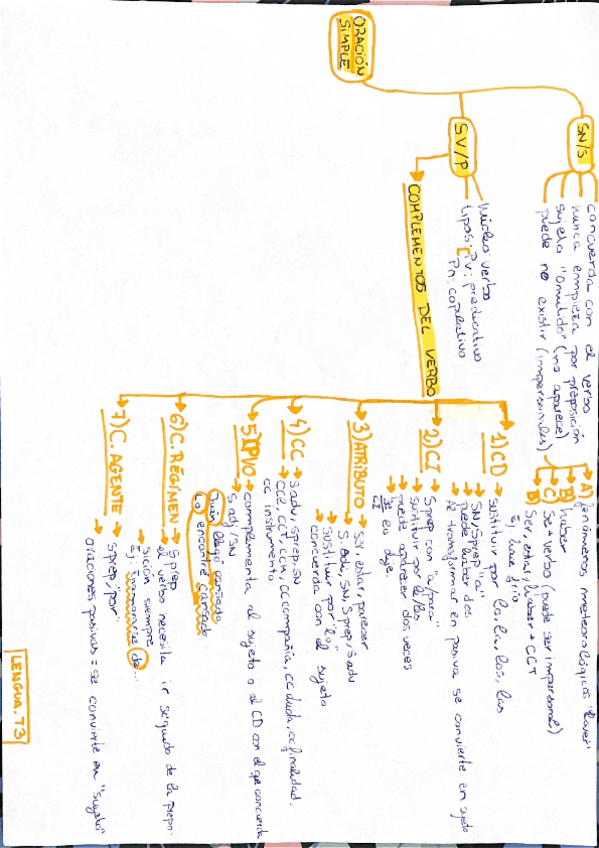 ORACIÓN
SIMPLE
SN/S
concuerda con el verbo
nunca empieza por preposición
sujeto "omitido" (no aparece)
puede no existir (impersonales)
A) fenómenos meteorológicos "llover"
B) haber
C) Se + verbo (puede ser impersonal)
D) Ser, estar, haber + CCT
Ej. hace frío
SV/P
Núcleo: verbo
tipos: Pv: predicativo
Pn: copulativo
COMPLEMENTOS DEL VERBO
1) CD → sustituir por lo, la, los, las
SN/Sprep "a"
puede haber dos
se transformar en pasiva se convierte en sujeto
2) CI → Sprep con "a/para"
sustituir por le/les
puede aparecer dos veces
Se lo dije.
CI
3) ATRIBUTO → ser, estar, parecer
S.adj, SN, Sprep, Sadv
sustituir por "lo"
concuerda con el sujeto
4) CC → Sadv, sprep, SN
CCL, CCT, CCM, CC compañía, CC duda, CC finalidad.
CC instrumento
5) PVO → complementa al sujeto o al CD con el que concuerda
S.adj/SN
Juan llegó cansado
Lo encontré cansado
6) C. RÉGIMEN → Sprep
el verbo necesita ir seguido de la prepo-
sición siempre
Ej: Enamorarse de...
7) C. AGENTE → sprep "por"
oraciones pasivas = se convierte en "sujeto"
LENGUA. T3